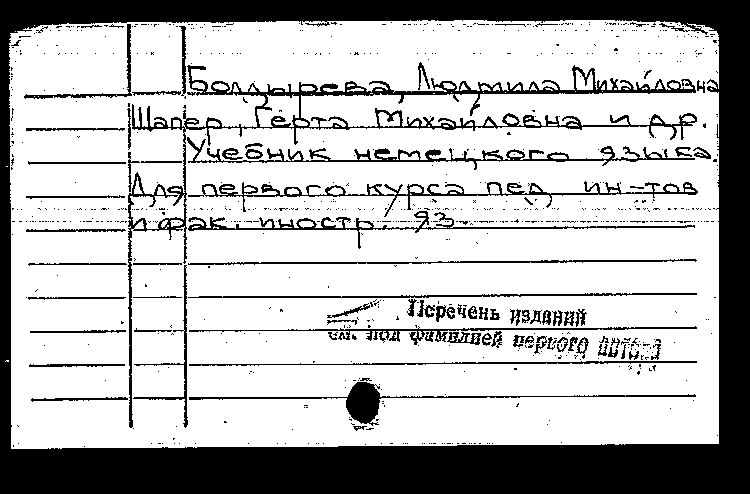 Болдырева, Людмила Михайловна
Шапер, Герта Михайловна и др.
Учебник немецкого языка.
Для первого курса пед. ин-тов
и фак. иностр. яз.
Перечень изданий
см. под фамилией первого автора